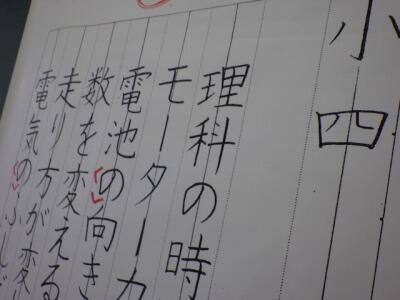 小四
理科の時
モーターカ
電池の向き
数を変える
走り方が変
電気のふし